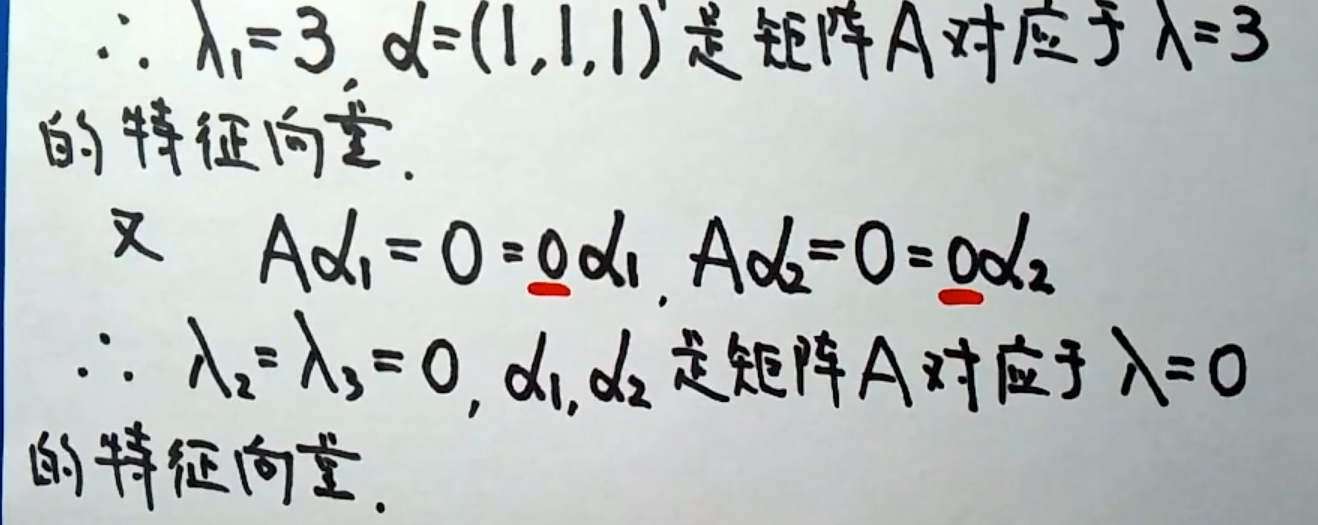 ∴ λ₁=3, α=(1,1,1)' 是矩阵A对应于λ=3
的特征向量.
又 Aα₁=0=0α₁, Aα₂=0=0α₂
∴ λ₂=λ₃=0, α₁,α₂ 是矩阵A对应于λ=0
的特征向量.